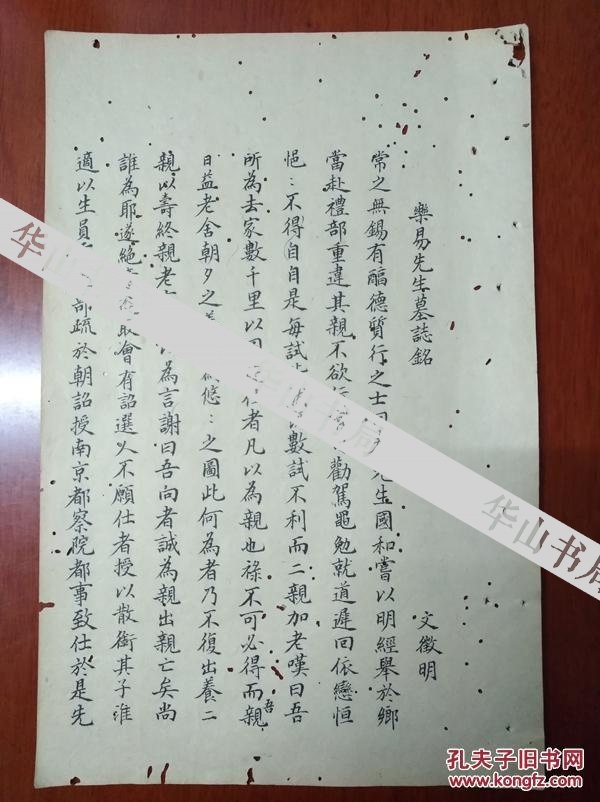 樂易先生墓誌銘
文徵明
常之無錫有醞德質行之士曰先生國和嘗以明經舉於鄉
當赴禮部重違其親不欲行勸駕黽勉就道遲回依戀恒
悒：不得自自是每試數試不利而二親加老嘆曰吾
所為去家數千里以者凡以為親也祿不可必得而吾親
日益老舍朝夕之悠：之圖此何為者乃不復出養二
親以壽終親老為言謝曰吾向者誠為親出親亡矣尚
誰為耶遂絕取會有詔選人不願仕者授以散銜其子淮
適以生員部疏於朝詔授南京都察院都事致仕於是先
华山书局
华山书局
华山书局
孔夫子旧书网
www.kongfz.com